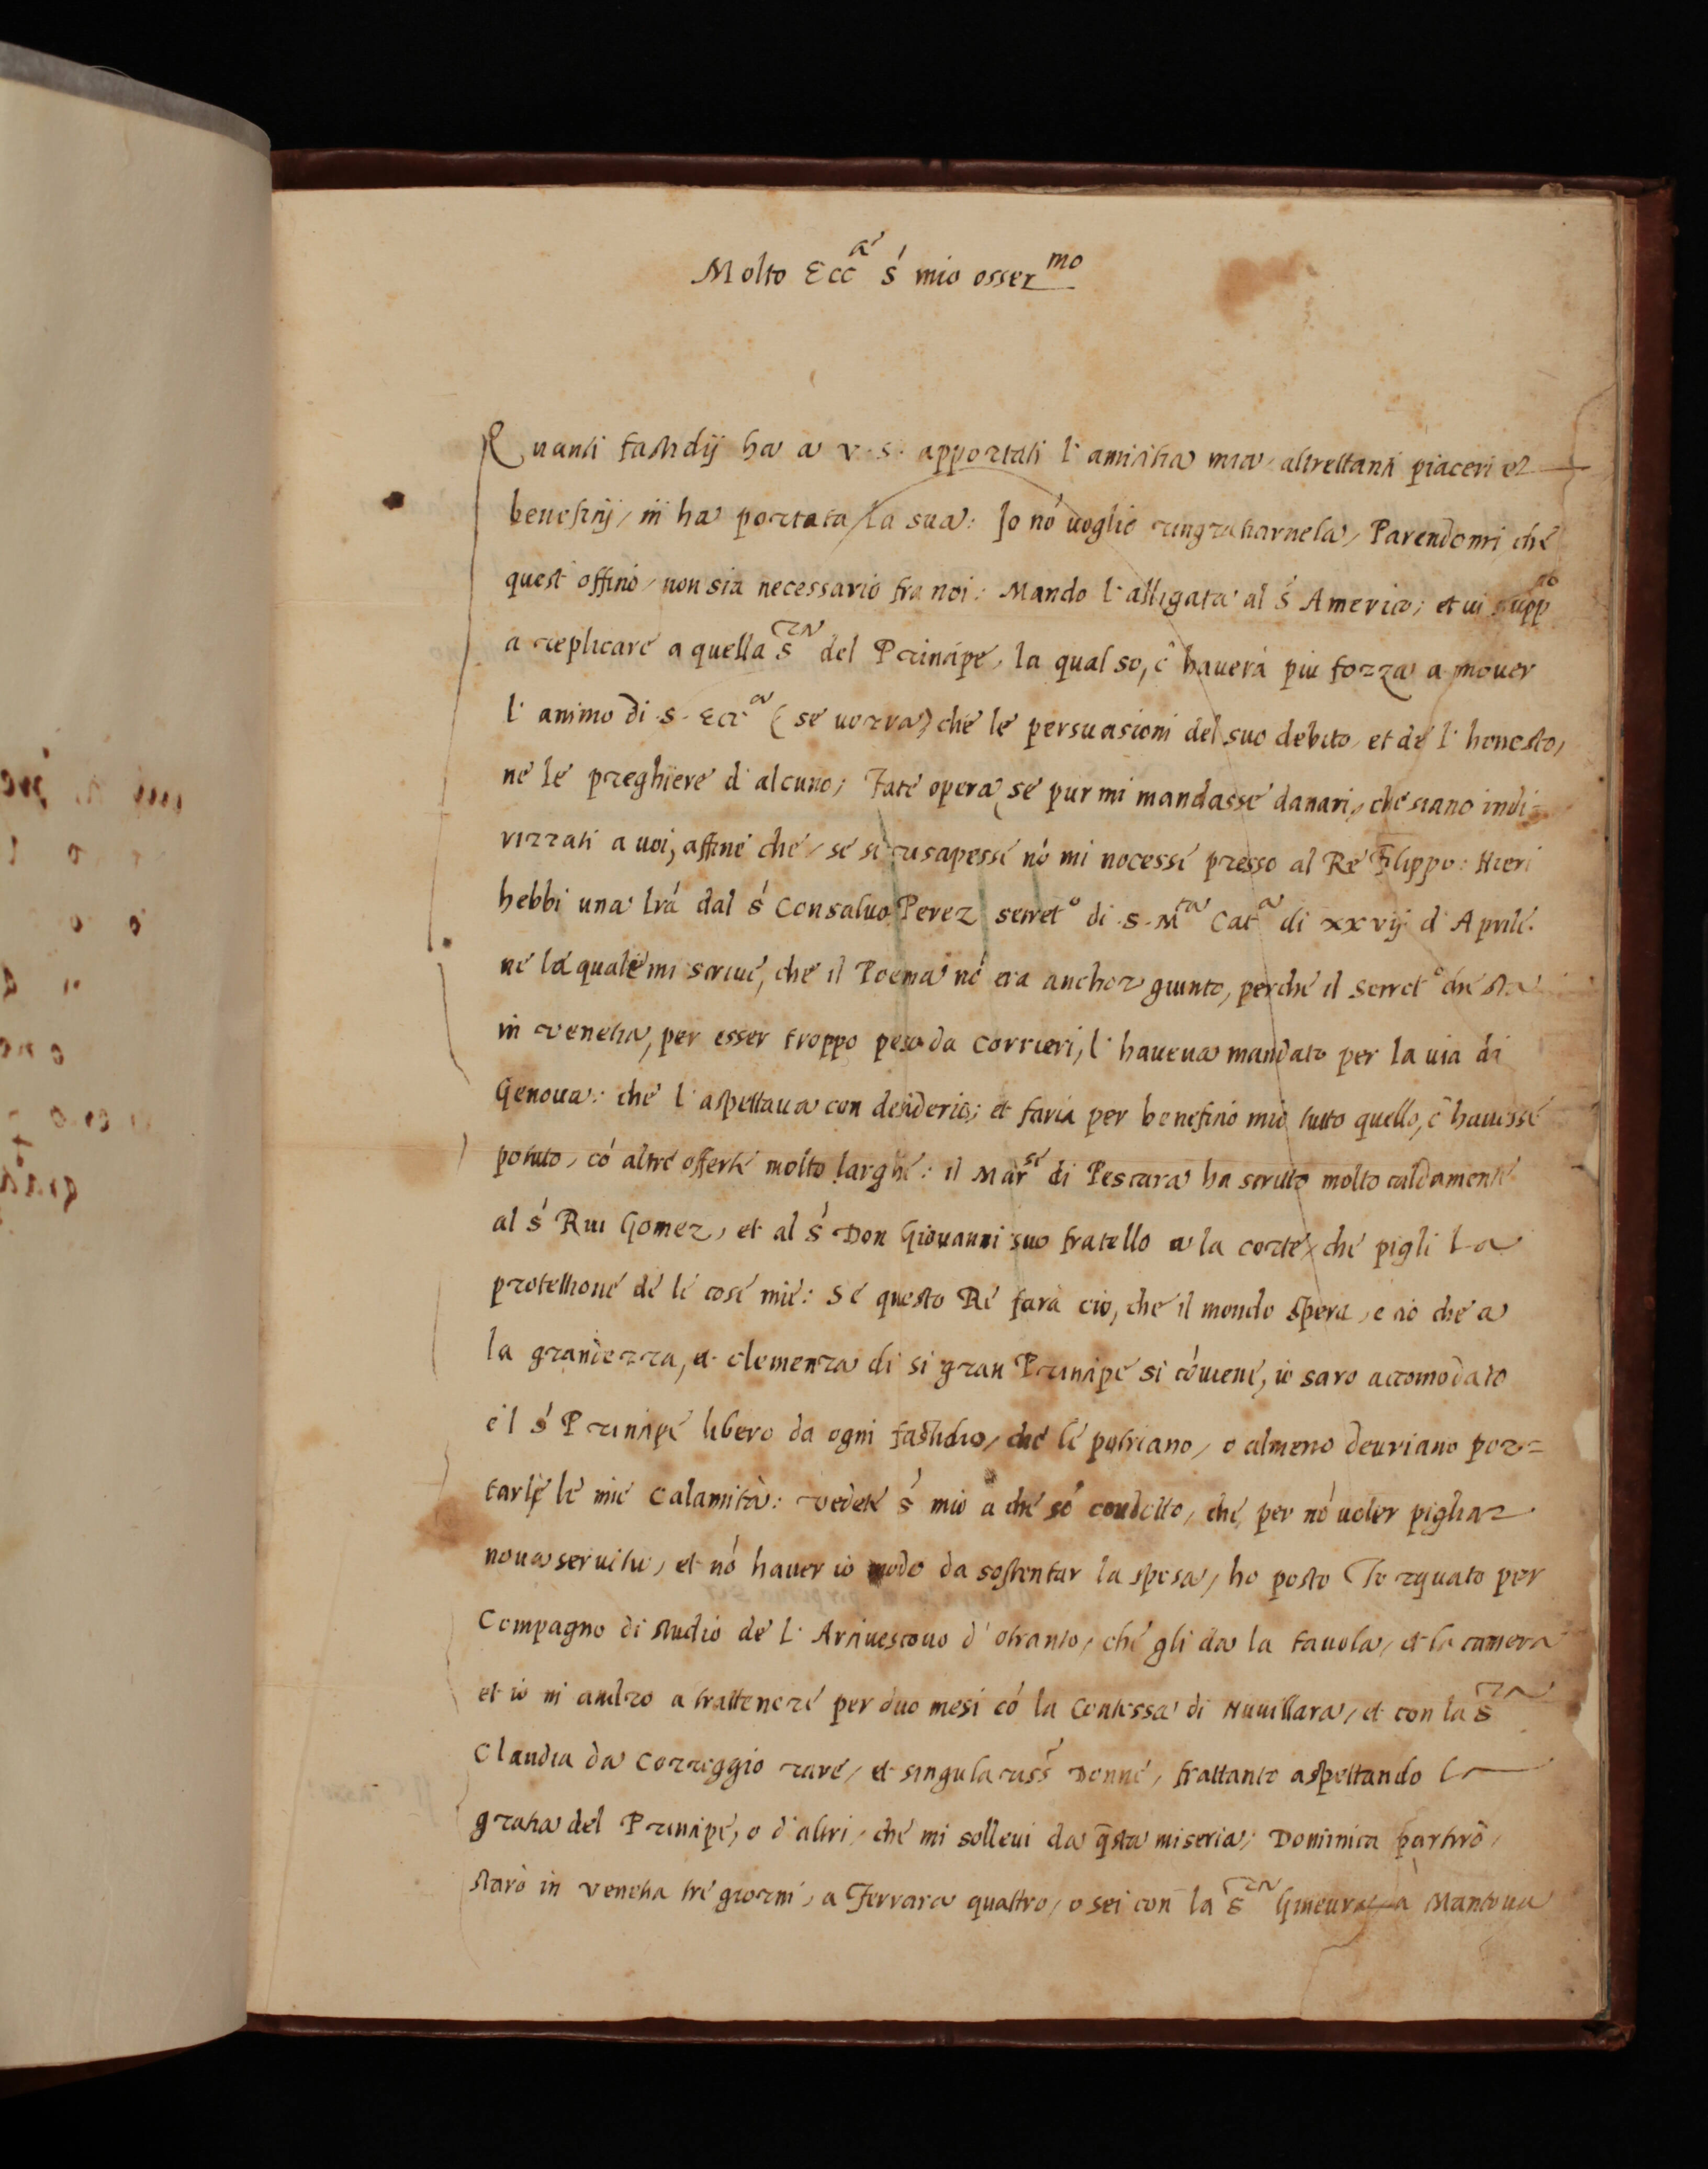 Molto Ecc.ᵃ S.ʳ mio osser.ᵐᵒ
Quanti fastidij ha a v. s. apportati l'amicitia mia, altrettanti piaceri et
beneficij, m ha portata la sua: Io nó uoglio ringratiarnela, Parendomi che
quest officio, non sia necessario fra noi: Mando l'alligata al S.ʳ Americo; et ui supp.ᶜᵒ
a replicare a quella S.ʳᵃ del Principe, la qual so, c̃ hauerà piu forza a mouer
l'animo di .s. Ecc.ᵃ (se uorrà) che le persuasioni del suo debito, et de l'honesto,
ne le preghiere d'alcuno; Fate opera, se pur mi mandasse danari, che siano indi=
rizzati a uoi, affine che, se si risapesse nó mi nocesse presso al Re Filippo: Hieri
hebbi una lr̃a dal S.ʳ Consaluo Perez secret.º di .s. M.ᵗᵃ Cat.ᵃ di xxvij d'Aprile.
ne la quale mi scriue, che il Poema nó era anchor giunto, perche il secret.º che sta
in venetia, per esser troppo peso da corrieri, l'haueua mandato per la uia di
Genoua: che l'aspettaua con desiderio; et faria per beneficio mio tutto quello, c̃ hauesse
potuto, có altre offerte molto larghe: il Mar.ˢᵉ di Pescara ha scritto molto caldamente
al S.ʳ Rui Gomez, et al S.ʳ Don Giouanni suo fratello a la corte, che pigli la
protettione de le cose mie: Se questo Re farà ciò, che il mondo spera, e ciò che a
la grandezza, et clemenza di si gran Principe si cóuiene, io saro accomodato
e'l S.ʳ Principe libero da ogni fastidio, che le potriano, o almeno deuriano por=
tarle le mie calamità: vedete S.ʳ mio a che só condotto, che, per nó uoler pigliar
noua seruitu, et nó hauer io modo da sostentar la spesa, ho posto Torquato per
Compagno di studio de l'Arciuescouo d'otranto, che gli da la tauola, et la camera
et io mi andro a trattenere per duo mesi có la Contessa di Nuuillara, et con la S.ʳᵃ
Claudia da Correggio rare, et singulariss.ᵉ Donne, frattanto aspettando la
gratia del Principe, o d'altri, che mi solleui da q̃sta miseria; Dominica partirò,
starò in venetia tre giorni, a Ferrara quattro, o sei con la S.ʳᵃ Gineura, a Mantoua